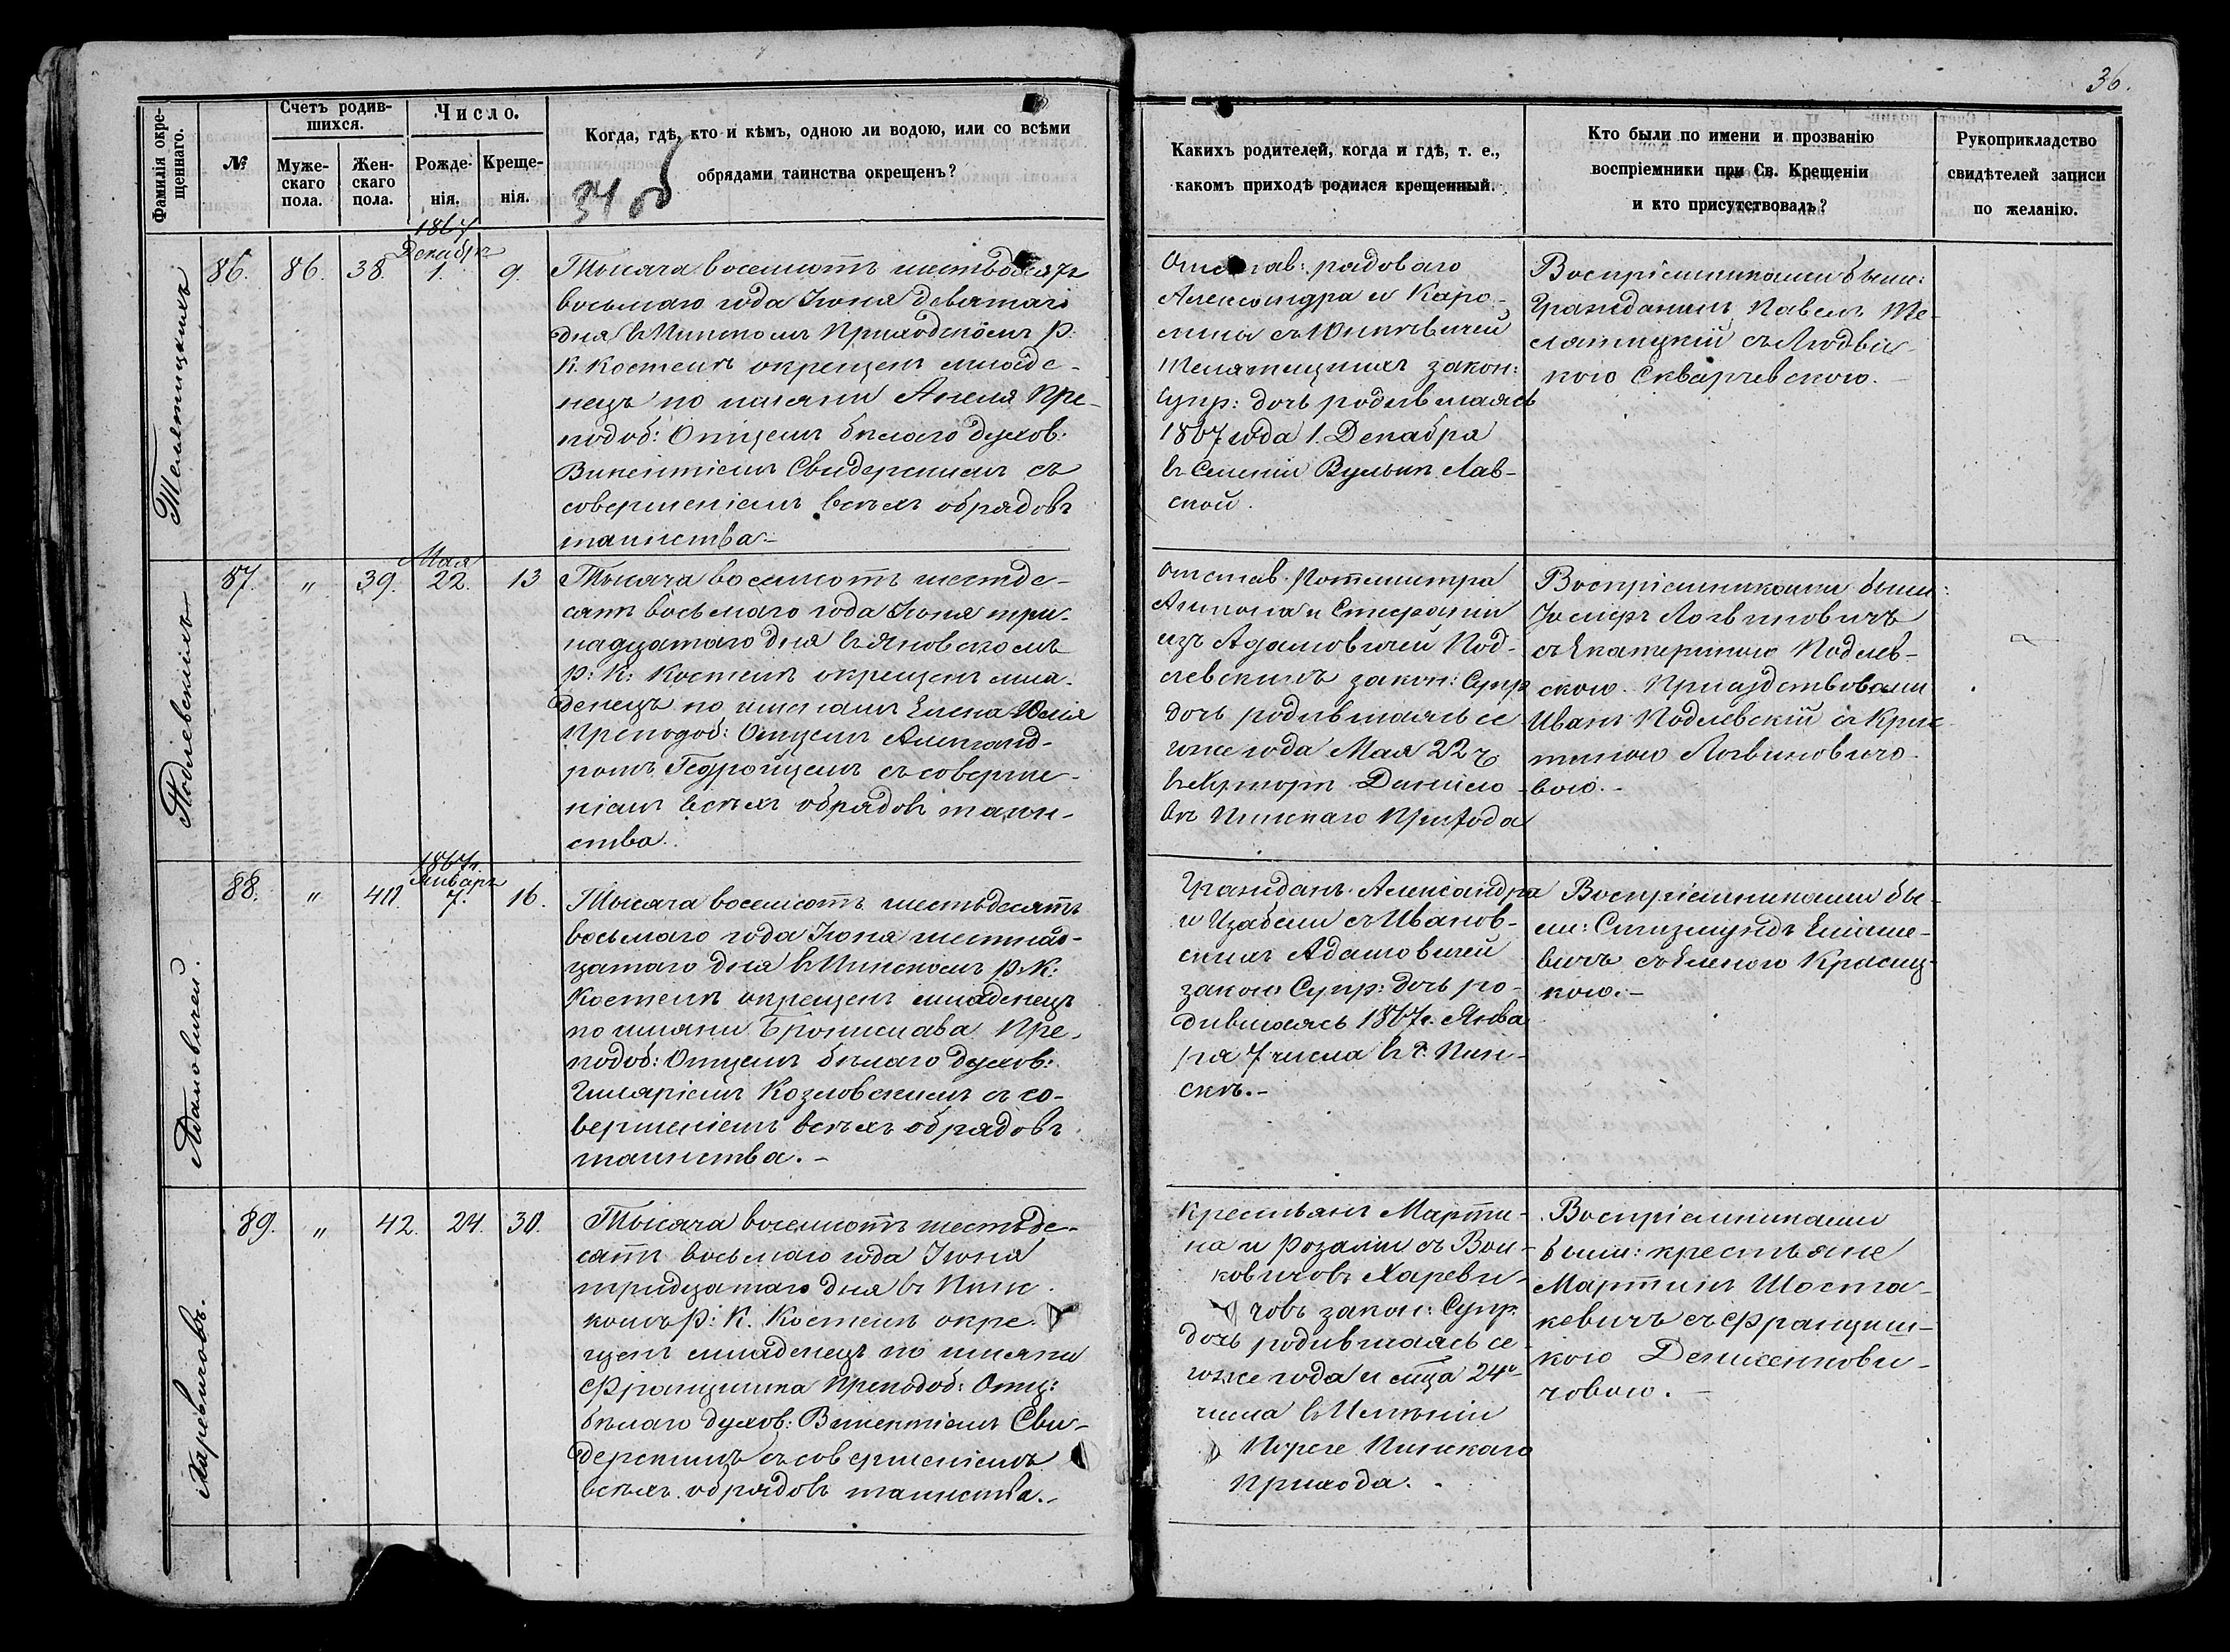 36.
Фамилія окре-
щеннаго.
№
Счетъ родив-
шихся.
Муже-
скаго
пола.
Жен-
скаго
пола.
Число.
Рожде-
нія.
Креще-
нія.
Когда, гдѣ, кто и кѣмъ, одною ли водою, или со всѣми
обрядами таинства окрещенъ?
34 об
Какихъ родителей, когда и гдѣ, т. е.,
какомъ приходѣ родился крещенный.
Кто были по имени и прозванію
воспріемники при Св. Крещеніи
и кто присутствовалъ?
Рукоприкладство
свидѣтелей записи
по желанію.
86.
86.
38.
1867
Декабрь
1.
9.
Тысяча восемсотъ шестьдесятъ
восьмаго года Іюня девятаго
дня въ Пинскомъ Приходскомъ Р:
К. Костелѣ окрещенъ младе-
нецъ по имяни Анеля Пре-
подоб: Отцемъ бѣлаго духов:
Викентіемъ Свидерскимъ съ
совершеніемъ всѣхъ обрядовъ
таинства.-
Отстав: рядоваго
Александра и Каро-
лины съ
закон:
Супр: дочь родившаяся
1867 года 1. Декабря
въ Селеніи Вульки Лав-
ской.
Воспріемниками были:
Гражданинъ Павелъ Те-
лятицкій съ Людви-
кою Скварчевскою.-
87.
"
39.
Мая
22.
13
Подлевскихъ
Тысяча восемсотъ шестьде-
сятъ восьмаго года Іюня три-
надцатаго дня въ Яновскомъ
Р: К: Костелѣ окрещенъ мла-
денецъ по имянамъ Елена Юлія
Преподоб: Отцемъ Александ-
ромъ Гедройцемъ съ соверше-
ніемъ всѣхъ обрядовъ таин-
ства.
Отстав.
Антона и Стефаніи
изъ Адамовичей Под-
левскихъ закон: Супр
дочь родившаяся се
гоже года Мая 22 ч
въ
въ Пинскаго Прихода
Воспріемниками были:
Логвиновичъ
съ Екатериною Подлев-
скою.
Иванъ Подлевскій съ Крис
тиною Логвиновичо-
вою.-
88.
"
40.
1867г.
Январь
7.
16.
Адамовичей.
Тысяча восемсотъ шестьдесятъ
восьмаго года Іюня шестнад-
цатаго дня въ Пинскомъ Р.К:
Костелѣ окрещенъ младенецъ
по имяни Бронислава Пре-
подоб: Отцемъ бѣлаго духов:
Гиляріемъ Козловскимъ съ со-
вершеніемъ всѣхъ обрядовъ
таинства.-
Гражданъ Александра
и Изабели съ Иванов-
скихъ Адамовичей
закон: Супр: дочь ро-
дившаяся 1867г. Янва
ря 7 числа въ г. Пин-
скѣ.-
Воспріемниками бы-
ли: Сигизмундъ
съ Еленою
кою.-
89.
"
42.
24.
30.
Харевичовъ.
Тысяча восемсотъ шестьде-
сятъ восьмаго года Іюня
тридцатаго дня въ Пинс
комъ Р: К. Костелѣ окре-
щенъ младенецъ по имяни
Францишка Преподоб: Отц:
бѣлаго духов: Викентіемъ Сви-
дерскимъ съ совершеніемъ
всѣхъ обрядовъ таинства.-
Крестьянъ Марти-
на и Розаліи съ Вой-
ковичовъ Хареви-
човъ закон: Супр.
дочь родившаяся се
гоже года и мца 24го
числа въ Имѣніи
Пинскаго
Прихода.-
Воспріемниками
были: крестьяне
Мартинъ Шоста-
кевичъ съ Францишк-
кою
човою.-